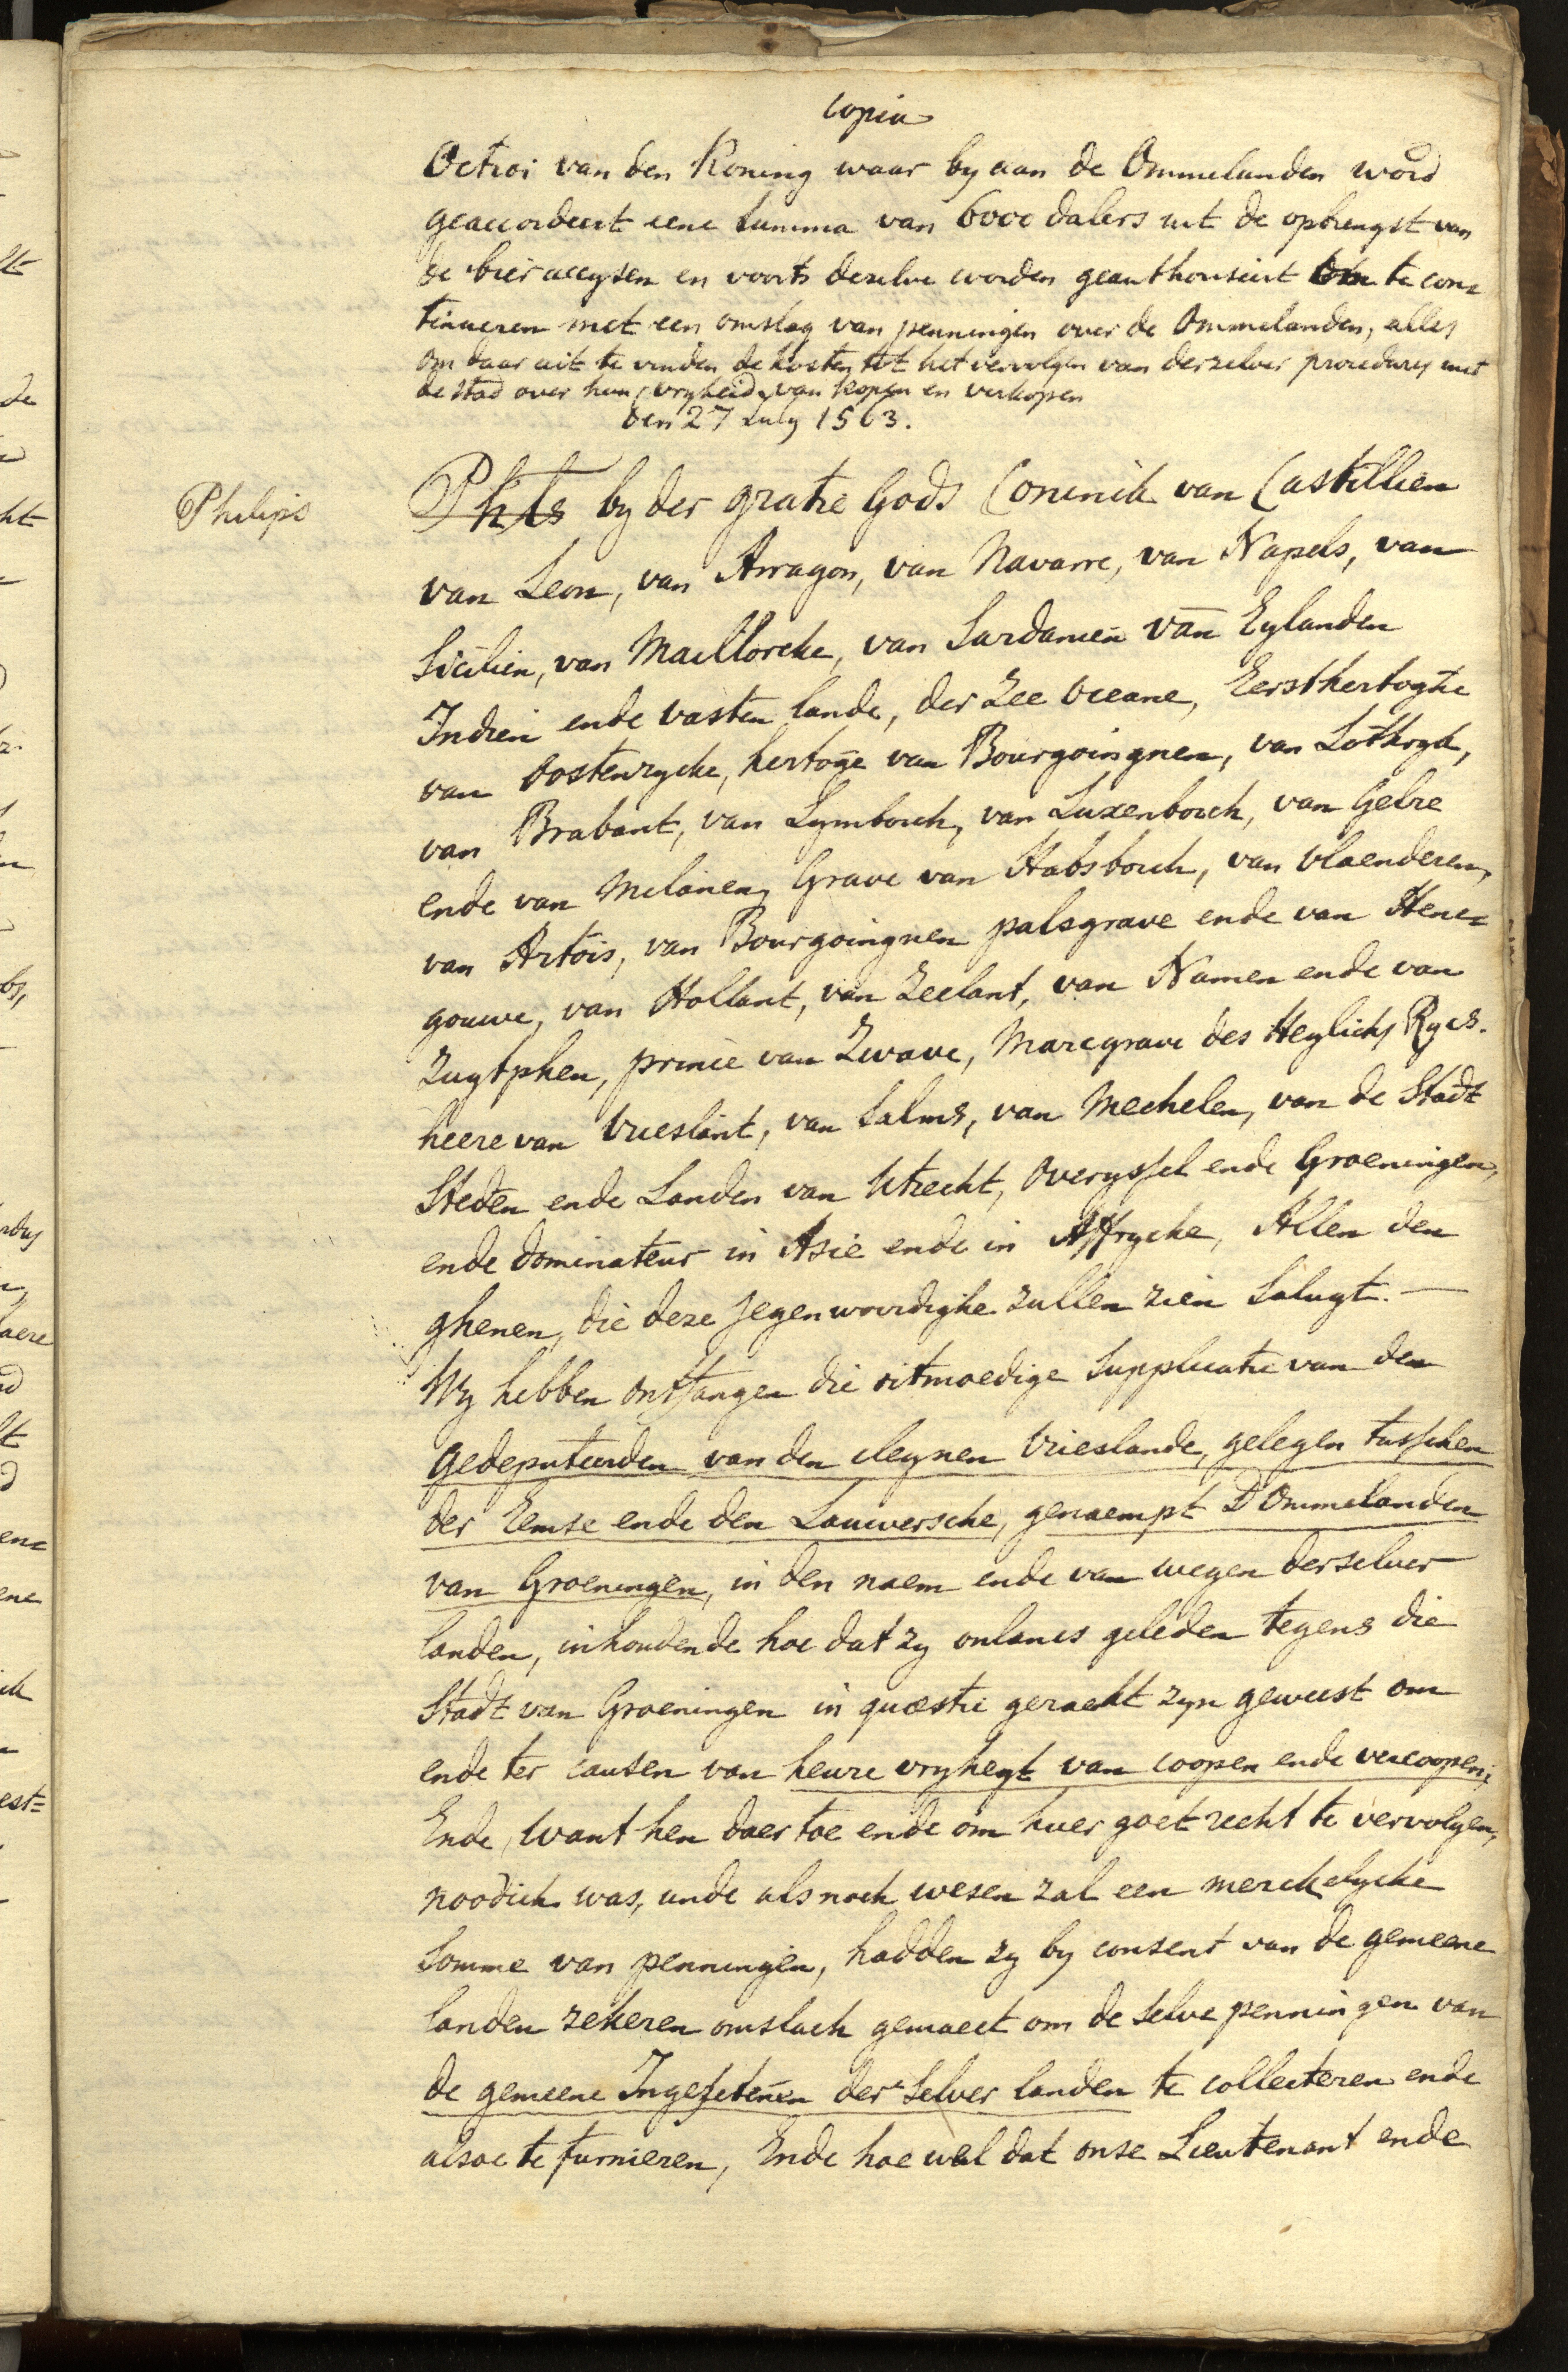 Copia
Octroi van den Koning waar by aan de Ommelanden word
geaccordeert eene Summa van 6000 dalers uit de opbrengst van
de bier accysen en voorts deselve worden geauthoriseert te con=
tinueren met een omslag van penningen over de Ommelanden, alles
om daar uit te vinden de kosten tot het vervolgen van derzelver procedures met
de stad over hun vryheid van kopen en verkopen
den 27 July 1563.
Philips
Phls by der gratie Gods Coninck van Castillien
van Leon, van Arragon, van Navarre, van Napels, van
Sicilien, van Maillorcke, van Sardanien van Eylanden
Indien ende vasten lande, der Zee Oceane, Eersthertoghe
van Oostenrycke, hertoge van Bourgoingnen, van Lothryck,
van Brabant, van Lymborch, van Luxenborch, van Gelre
ende van Melanen, Grave van Habsborch, van Vlaenderen,
van Artois, van Bourgoingnen palsgrave ende van Hene=
gouwe, van Hollant, van Zeelant, van Namen ende van
Zuytphen, prince van Zwave, Marcgrave des Heylichs Rycs.
heere van Vrieslant, van Salms, van Mechelen, van de Stadt
Steden ende Landen van Utrecht, Overyssel ende Groeningen,
ende dominateur in Asie ende in Affrycke, Allen den
ghenen, die deze jegenwoordighe zullen zien Saluyt. —
Wy hebben ontfangen die oitmoedige Supplicatie van den
gedeputeerden van den cleynen Vrieslande, gelegen tusschen
der Eemse ende den Lauwersche, genaempt D'Ommelanden
van Groeningen, in den naem ende van wegen derselver
landen, inhoudende hoe dat zy onlancs geleden tegens die
Stadt van Groeningen in quæstie geraeckt zyn geweest om
ende ter causen van heure vryheyt van coopen ende vercoopen;
Ende, want hen daer toe ende om huer goet recht te vervolgen,
noodich was, unde als noch wesen zal een merckelycke
Somme van penningen, hadden zy by consent van de gemeene
landen zekeren omslach gemaect om de selve penningen van
de gemeene Ingesetenen der Selver landen te collecteren ende
alsoe te furnieren, Ende hoe wel dat onse Lieutenant ende